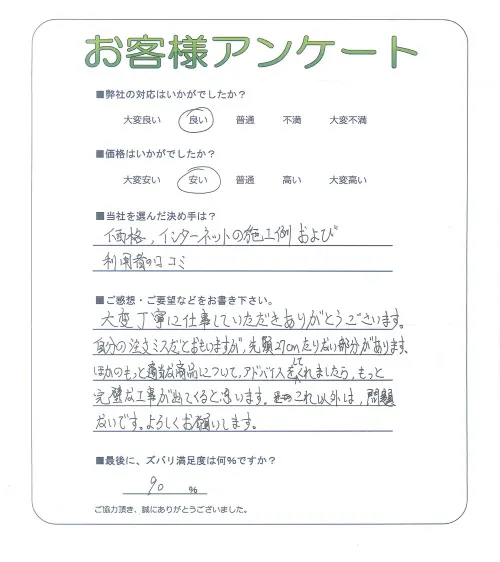 お客様アンケート
■弊社の対応はいかがでしたか?
大変良い 良い 普通 不満 大変不満
■価格はいかがでしたか?
大変安い 安い 普通 高い 大変高い
■当社を選んだ決め手は?
価格、インターネットの施工例および
利用者の口コミ
■ご感想・ご要望などをお書き下さい。
大変丁寧に仕事していただきありがとうございます。
自分の注文ミスだとおもいますが、先頭27cmたりない部分があります、
ほかのもっと適当な商品について、アドバイスをしてくれましたら、もっと
完璧な工事が出てくると思います。これ以外は、問題
ないです。よろしくお願いします。
■最後に、ズバリ満足度は何%ですか?
90 %
ご協力頂き、誠にありがとうございました。